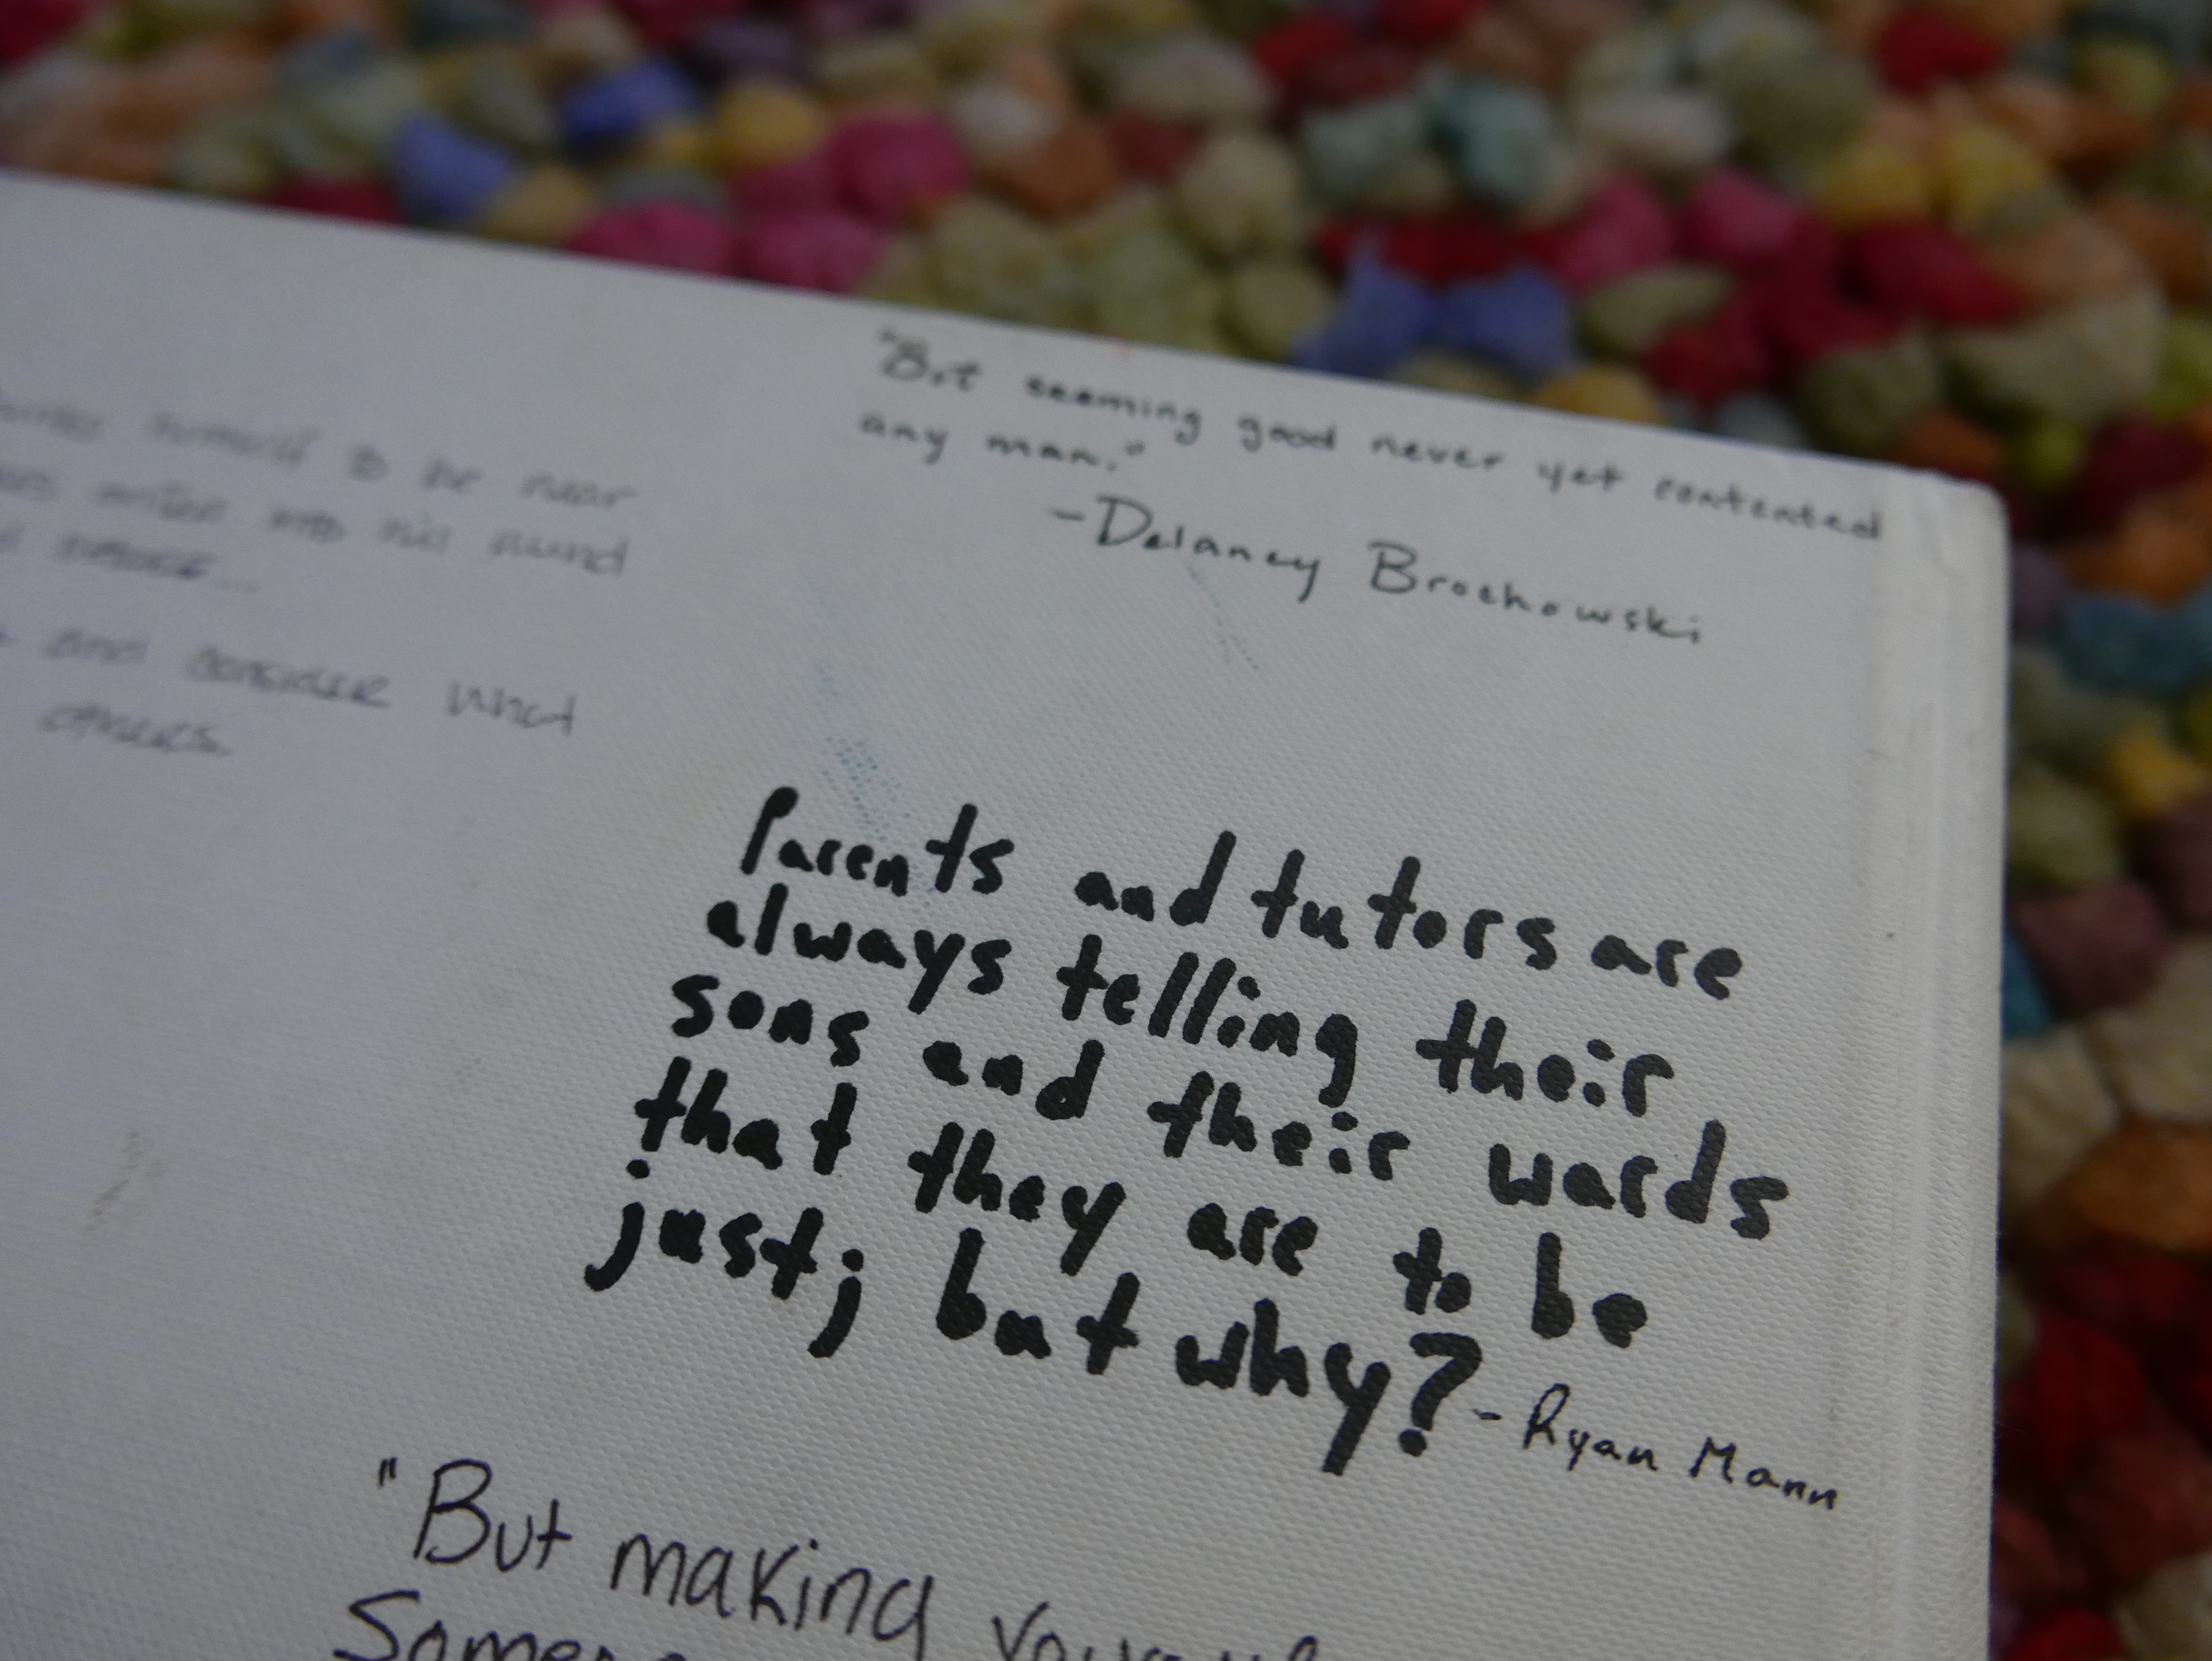 himself to be near
into his mind
and consider what
others.
"But seeming good never yet contented
any man."
-Delaney Brochowski
Parents and tutors are
always telling their
sons and their wards
that they are to be
just; but why?
-Ryan Mann
"But making